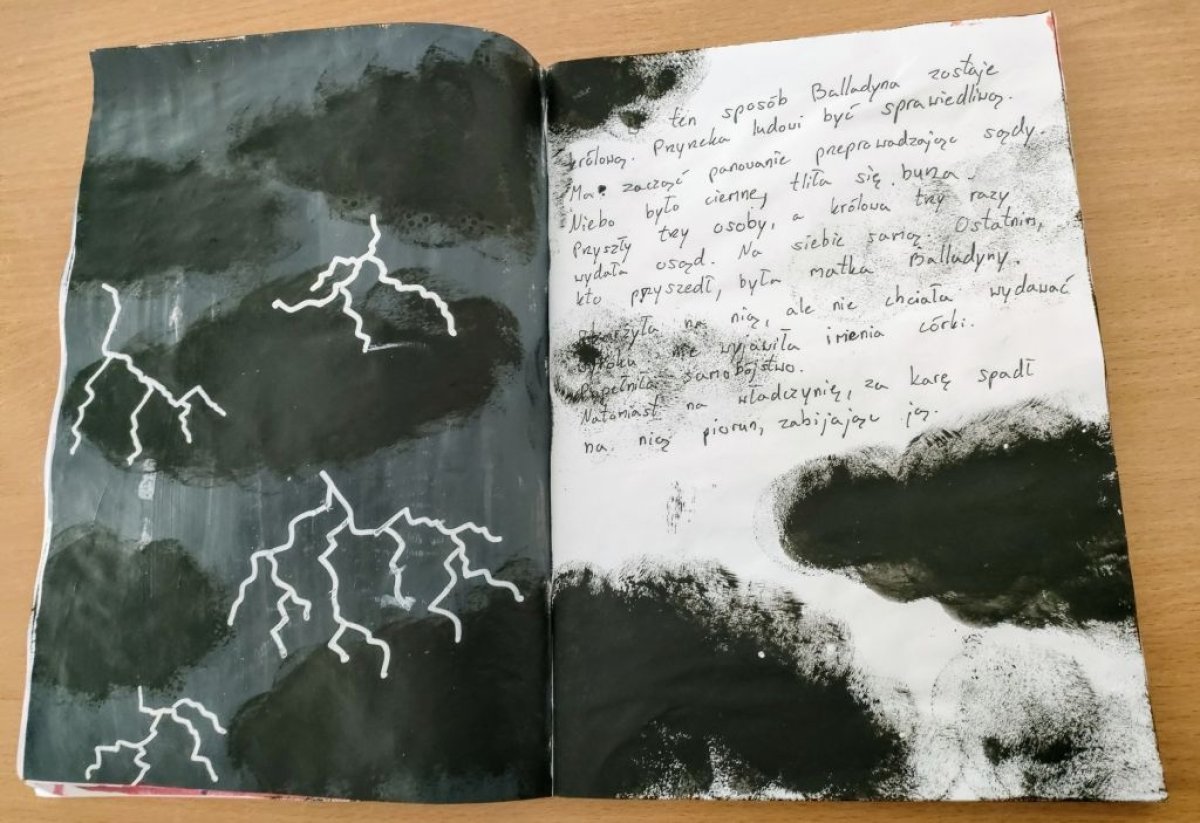 ten sposób Balladyna zostaje
królową. Przyrzeka ludowi być sprawiedliwą.
Ma zacząć panowanie przeprowadzając sądy.
Niebo było ciemne, tliła się burza.
Przyszły trzy osoby, a królowa trzy razy
wydała osąd. Na siebie samą. Ostatnim,
kto przyszedł, była matka Balladyny.
na nią, ale nie chciała wydawać
nie wyjawiła imienia córki.
Popełniła samobójstwo.
Natomiast na władczynię, za karę spadł
na nią piorun, zabijając ją.